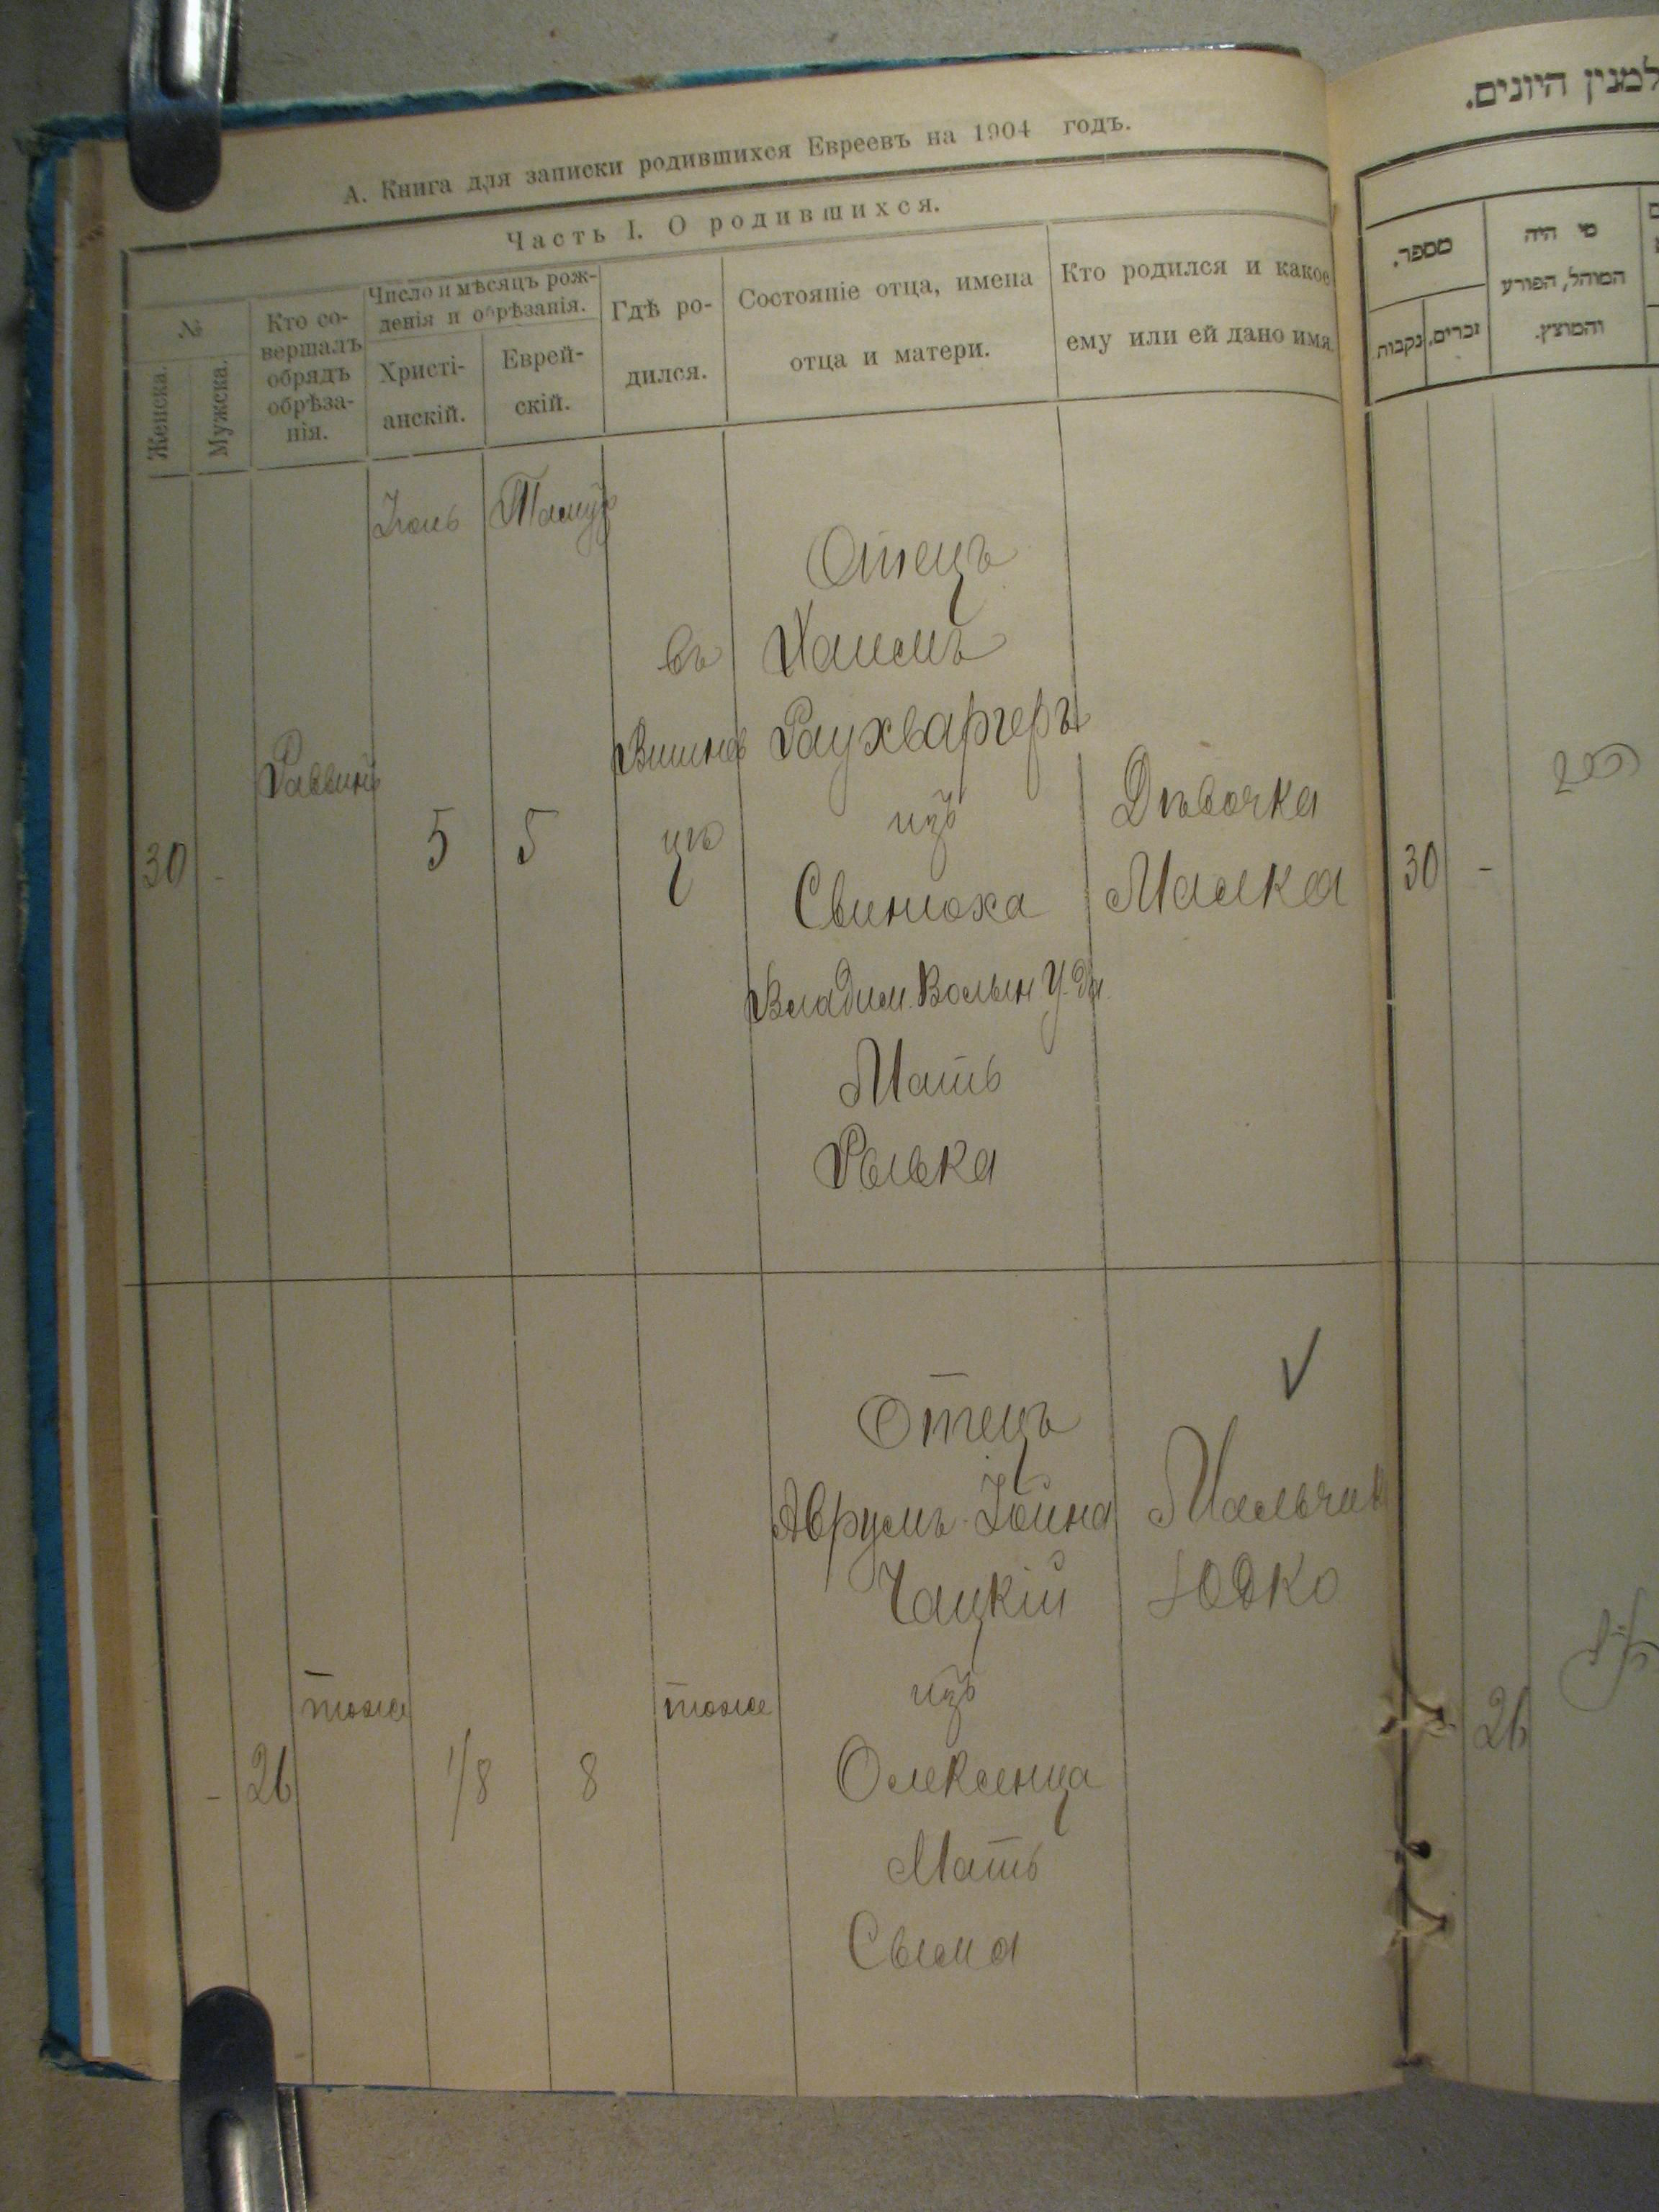 А. Книга для записки родившихся Евреевъ на 1904 годъ.
Часть I. О родившихся.
№
Женска.
Мужска.
Кто со-
вершалъ
обрядъ
обрѣза-
нія.
Число и мѣсяцъ рож-
денія и обрѣзанія.
Христі-
анскій.
Еврей-
скій.
Гдѣ ро-
дился.
Состояніе отца, имена
отца и матери.
Кто родился и какое
ему или ей дано имя.
Іюнь
Тамуз
30
-
Раввинъ
5
5
въ
Вишнев
цѣ
Отецъ
Хаимъ
Раухваргеръ
изъ
Свинюха
Владим. Волын У-да
Мать
Рывка
Дѣвочка
Малка
-
26
тоже
1/8
8
тоже
Отецъ
Аврумъ-Іойна
Чацкій
изъ
Олексенца
Мать
Сыма
Мальчик
Юдко
למנין היונים.
מספר.
נקבות
זכרים.
מי היה
המוהל, הפורע
והמוצץ.
30
-
26